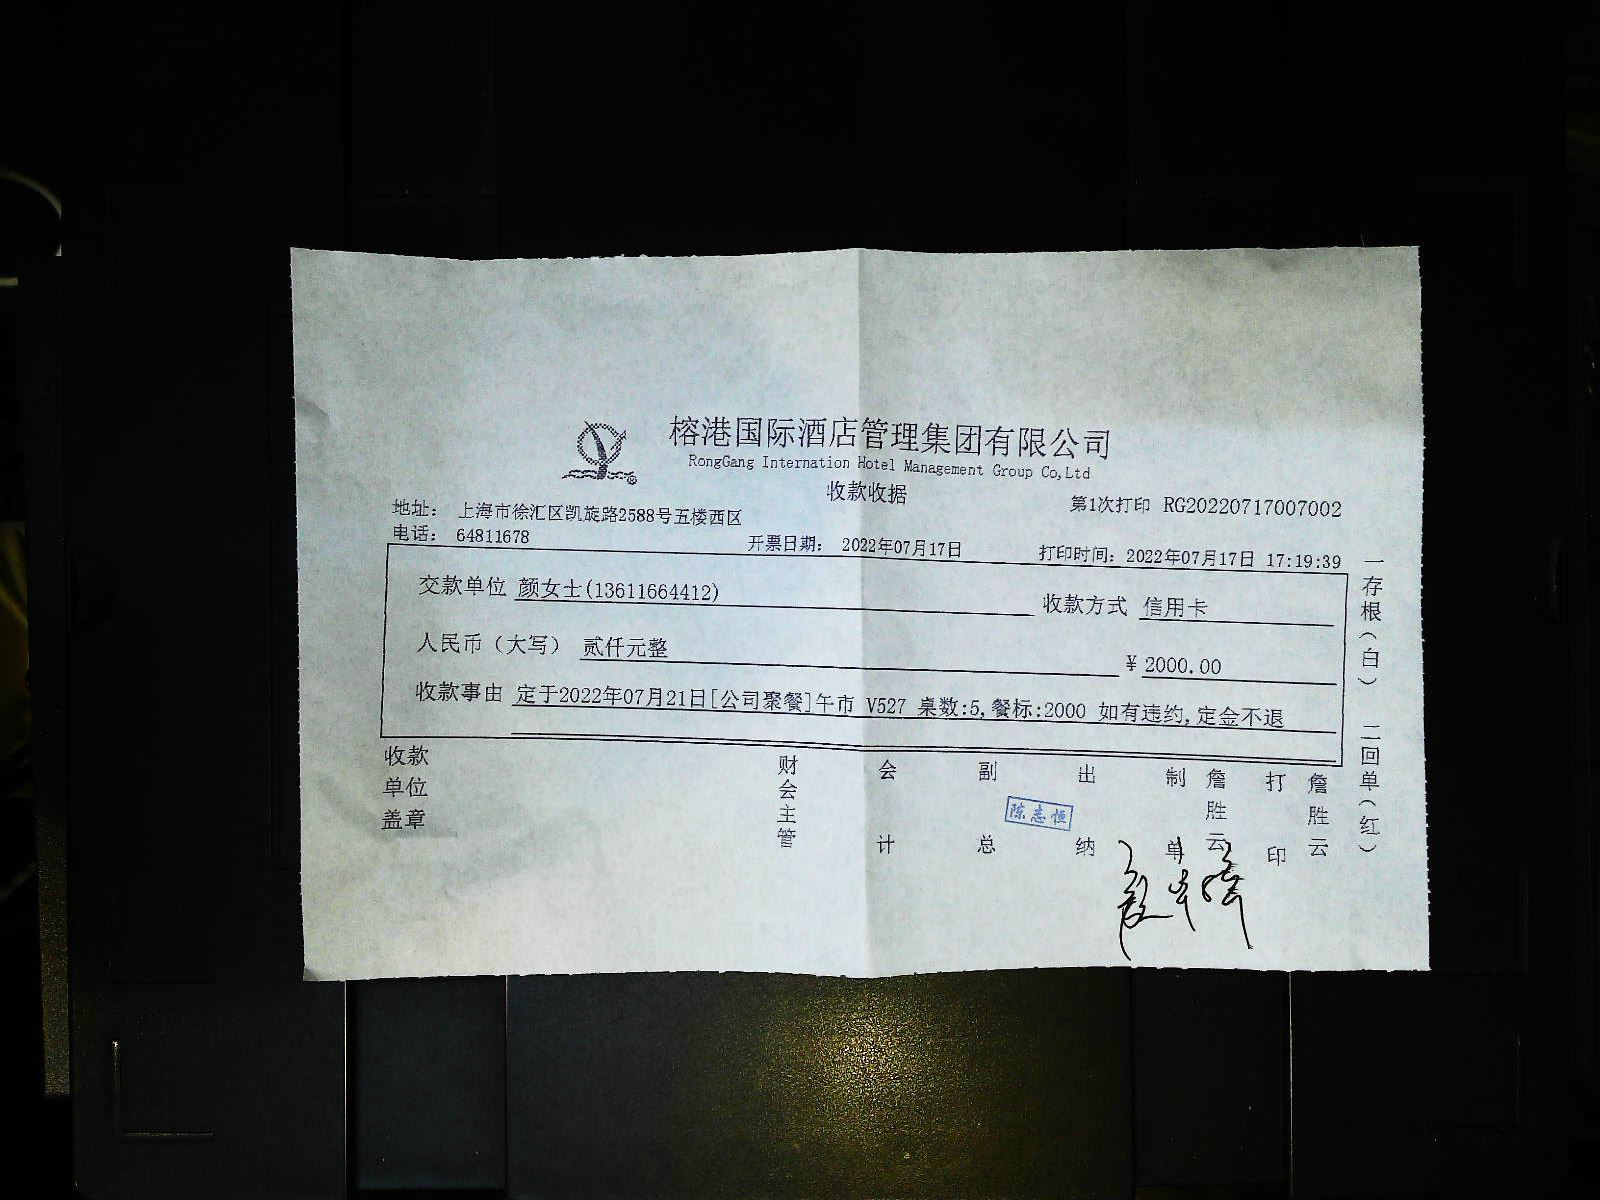 榕港国际酒店管理集团有限公司
RongGang Internation Hotel Management Group Co,Ltd
收款收据
第1次打印 RG20220717007002
地址： 上海市徐汇区凯旋路2588号五楼西区
电话： 64811678
开票日期： 2022年07月17日
打印时间：2022年07月17日 17:19:39
交款单位 颜女士(13611664412)
收款方式 信用卡
人民币（大写） 贰仟元整
¥ 2000.00
收款事由 定于2022年07月21日[公司聚餐]午市 V527 桌数:5,餐标:2000 如有违约,定金不退
收款单位盖章
财会主管
会计
副总
陈志恒
出纳
制单
詹胜云
打印
詹胜云
一存根(白) 二回单(红)